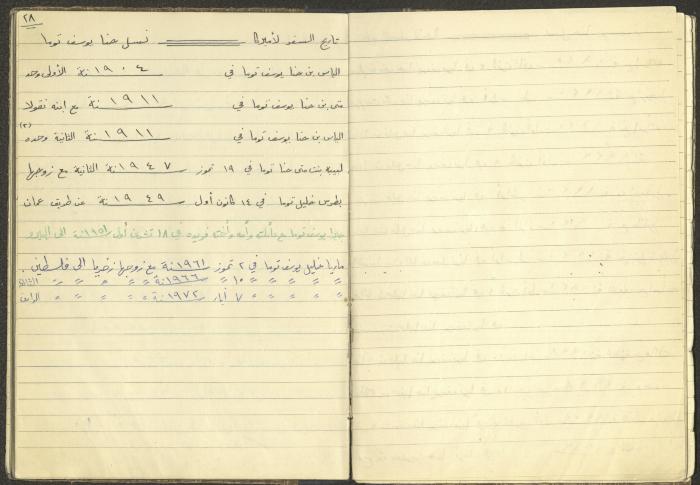 ٢٨
تاريخ السفر لأميركا نسل حنا يوسف توما
الياس بن حنا يوسف توما في سنة ١٩٠٤ الأولى وحده
متى بن حنا يوسف توما في سنة ١٩١١ مع ابنه نقولا
الياس بن حنا يوسف توما في سنة ١٩١١ الثانية وحده (٢)
لبيبه بنت متى حنا توما في ١٩ تموز سنة ١٩٤٧ الثانية مع زوجها
بطرس خليل توما في ١٤ كانون أول سنة ١٩٤٩ عن طريق عمان
يوسف توما مع وأخته فريده في ١٨ تشرين أول سنة ١٩٥١ الى
ماريا خليل يوسف توما في ٢ تموز سنة ١٩٦١ مع زوجها زخريا الى فلسطين .
〃 〃 〃 〃 〃 ١٥ 〃 سنة ١٩٦٦ 〃 〃 〃 〃 〃 الثالثة
〃 〃 〃 〃 〃 ٧ أيار سنة ١٩٧٢ 〃 〃 〃 〃 〃 الرابعة